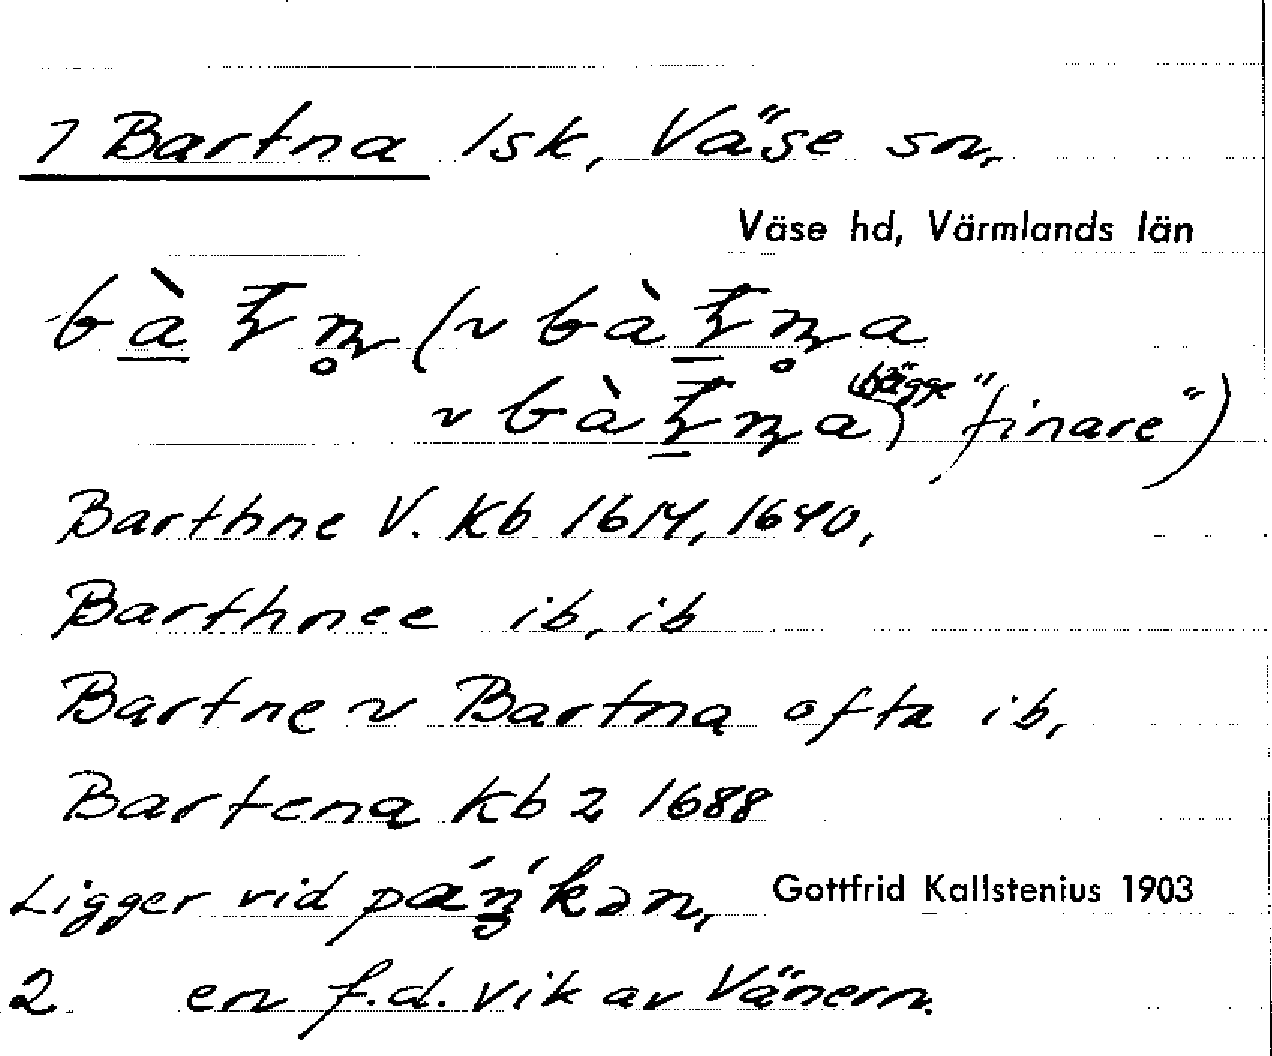 1 Bartna lsk, Väse sn,
Väse hd, Värmlands län
bà ʈ ɳ̥ (~ bà ʈ ɳ̥ a
~ bà ʈ ɳ a) bägge "finare")
Barthne V. Kb 1614, 1640,
Barthnee ib, ib
Bartne ~ Bartna ofta ib,
Bartena Kb 2 1688
Ligger vid páŋ́kən,
Gottfrid Kallstenius 1903
2 en f.d. vik av Vänern.